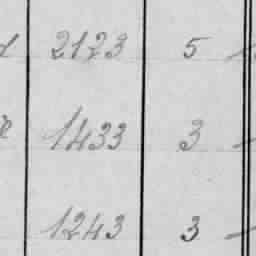 2123 5
1433 3
1243 3